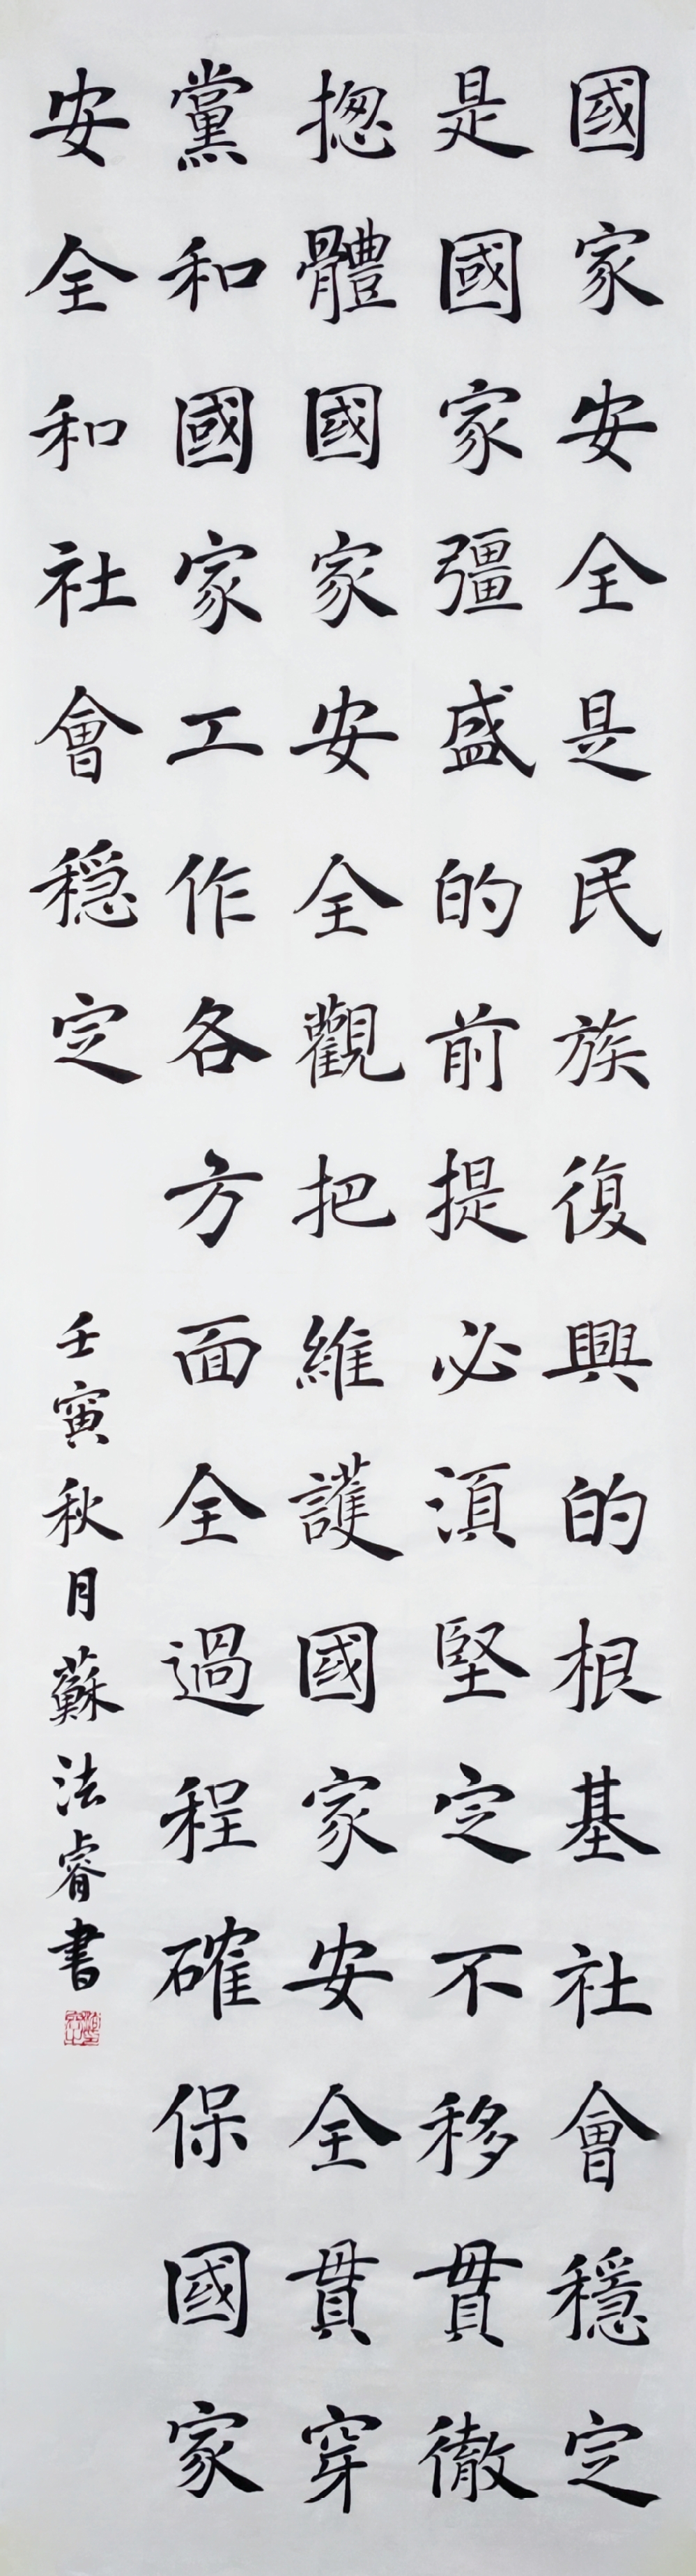 國家安全是民族復興的根基社會穩定
是國家彊盛的前提必須堅定不移貫徹
揔體國家安全觀把維護國家安全貫穿
黨和國家工作各方面全過程確保國家
安全和社會穩定
壬寅秋月蘇法睿書